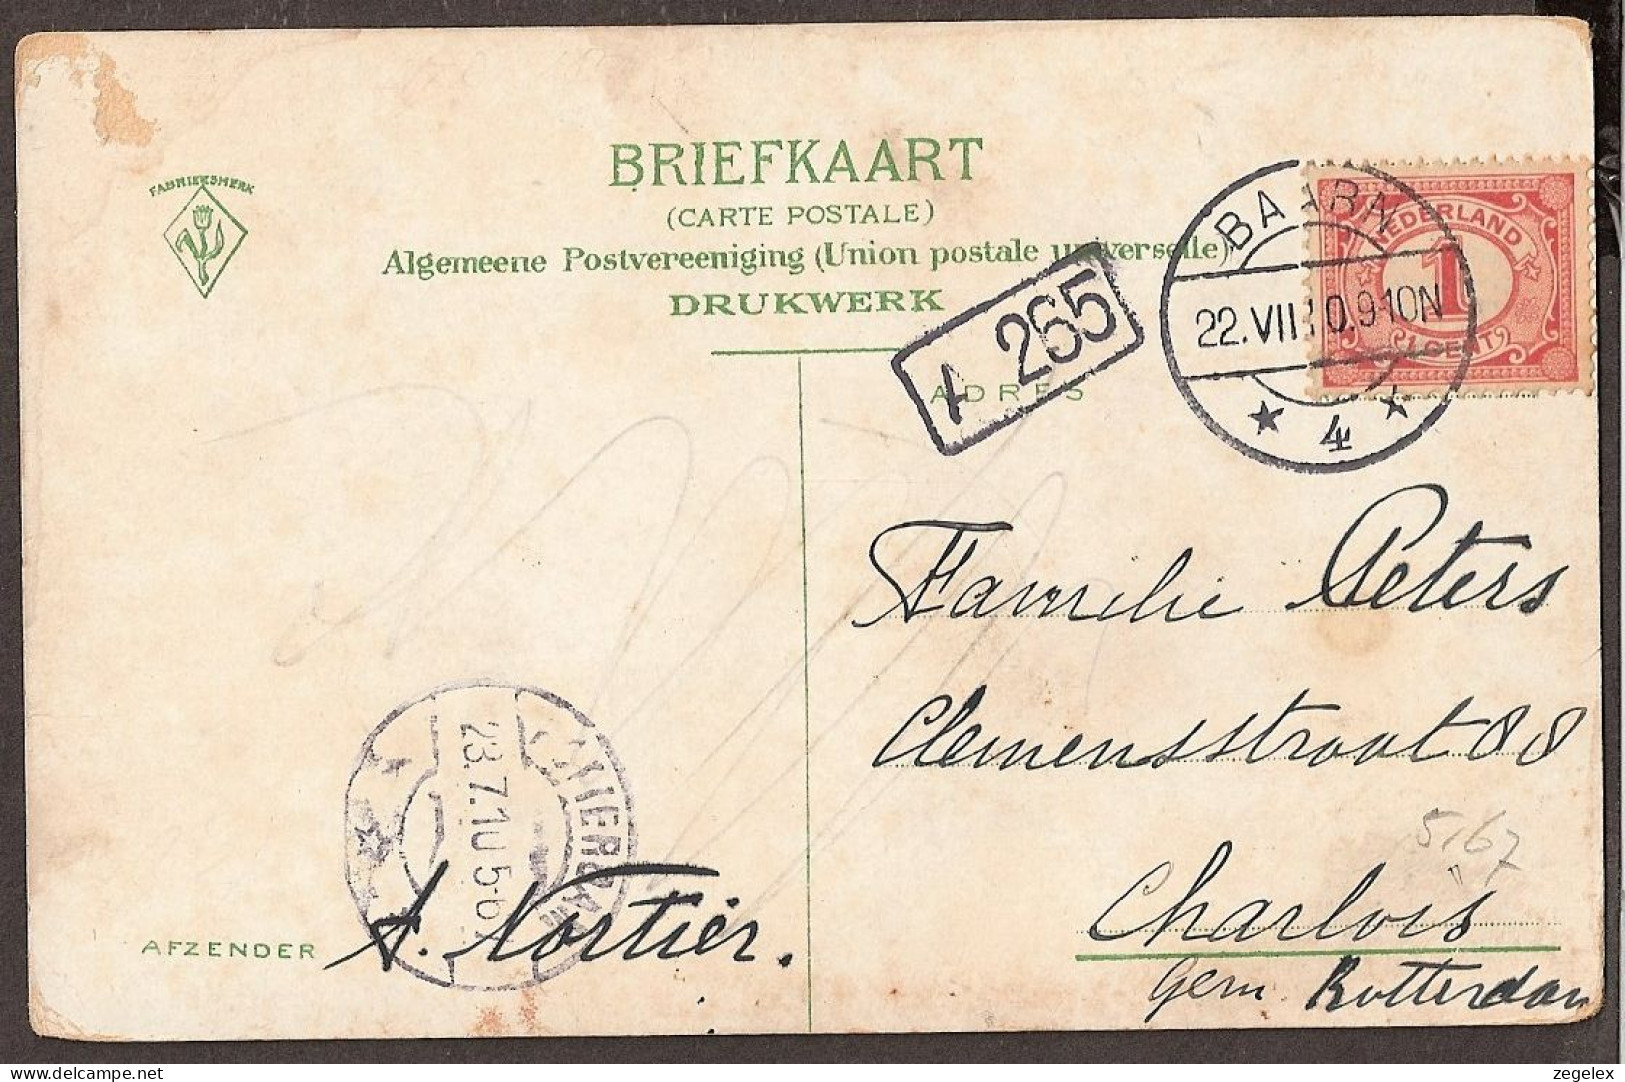 FABRIEKSMERK
BRIEFKAART
(CARTE POSTALE)
Algemeene Postvereeniging (Union postale universelle)
DRUKWERK
A 265
BAARN
22.VII.10.9-10N
4
NEDERLAND
1
1 CENT
ADRES
Familie Peters
Clemensstraat 88
5167
Charlois
Gem. Rotterdam
23.7.10 5-6
AFZENDER A. Nortier.
zegelex